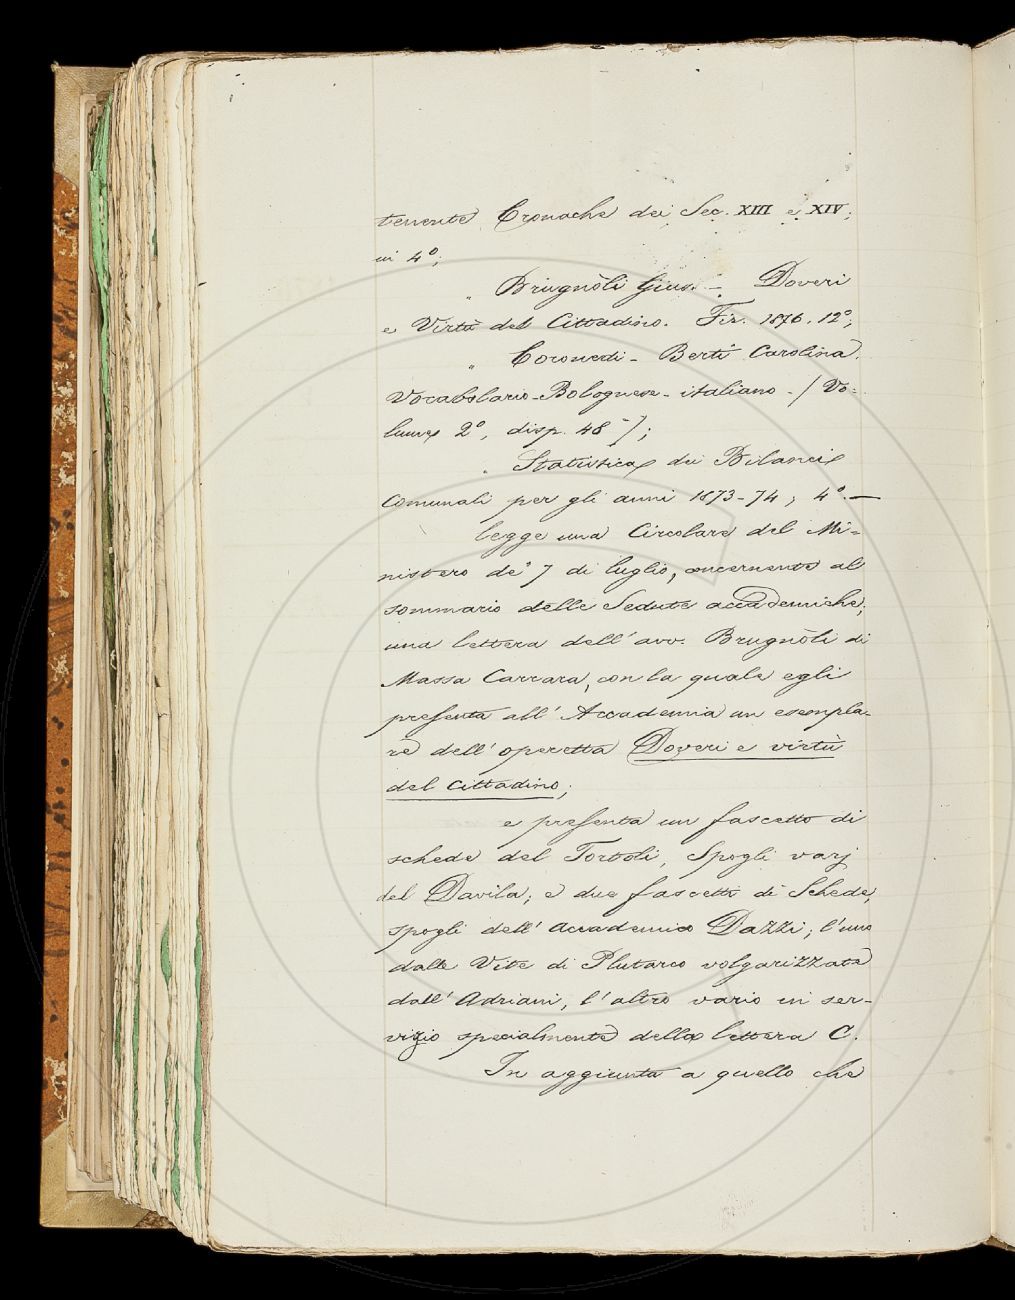 tenente Cronache dei Sec. XIII e XIV;
in 4º;
" Brugnòli Gius. - Doveri
e Virtù del Cittadino. Fir. 1876. 12º;
" Coronedi - Berti Carolina.
Vocabolario-Bolognese-italiano - (Vo-
lume 2º, disp. 48ª);
" Statistica dei Bilanci
Comunali per gli anni 1873-74; 4º. —
legge una Circolare del Mi-
nistero de' 7 di luglio, concernente al
sommario delle Sedute accademiche;
una lettera dell'avv. Brugnòli di
Massa Carrara, con la quale egli
presenta all'Accademia un esempla-
re dell'operetta Doveri e virtù
del cittadino;
e presenta un fascetto di
schede del Tortoli, Spogli varj
del Davila; e due fascetti di Schede,
spogli dell'Accademico Dazzi; l'uno
dalle Vite di Plutarco volgarizzate
dall'Adriani, l'altro vario in ser-
vizio specialmente della lettera C.
In aggiunta a quello che